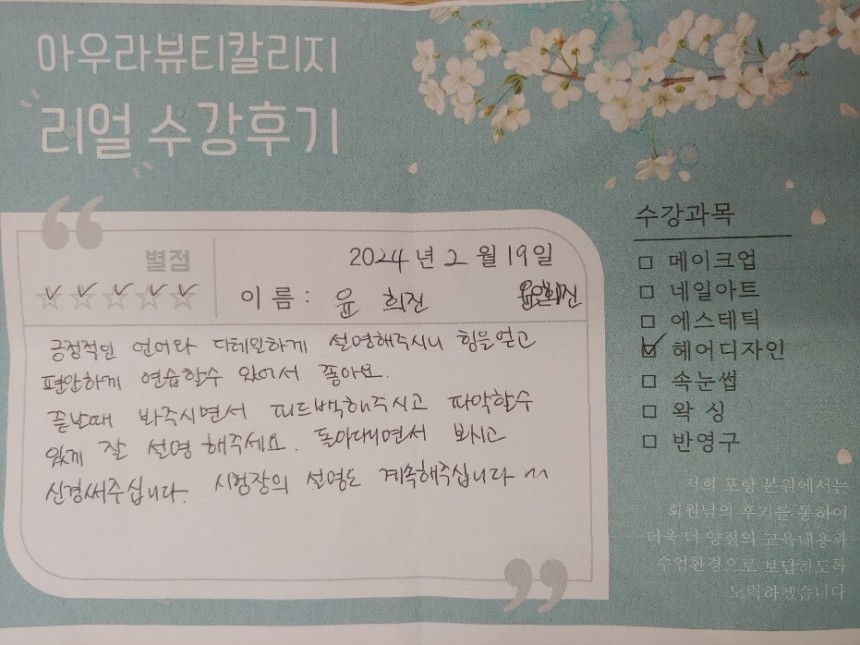 아우라뷰티칼리지
리얼 수강후기
별점
2024년 2월 19일
이름: 윤희진 윤희진
긍정적인 언어와 디테일하게 설명해주시니 힘을 얻고
편안하게 연습할수 있어서 좋아요.
끝날때 봐주시면서 피드백해주시고 파악할수
있게 잘 설명해주세요. 돌아다니면서 보시고
신경써주십니다. 시험장의 설명도 계속해주십니다 m
수강과목
메이크업
네일아트
에스테틱
헤어디자인
속눈썹
왁싱
반영구
저희 포항 본원에서는
회원님의 후기를 통하여
더욱 더 양질의 교육내용과
수업환경으로 보답하도록
노력하겠습니다